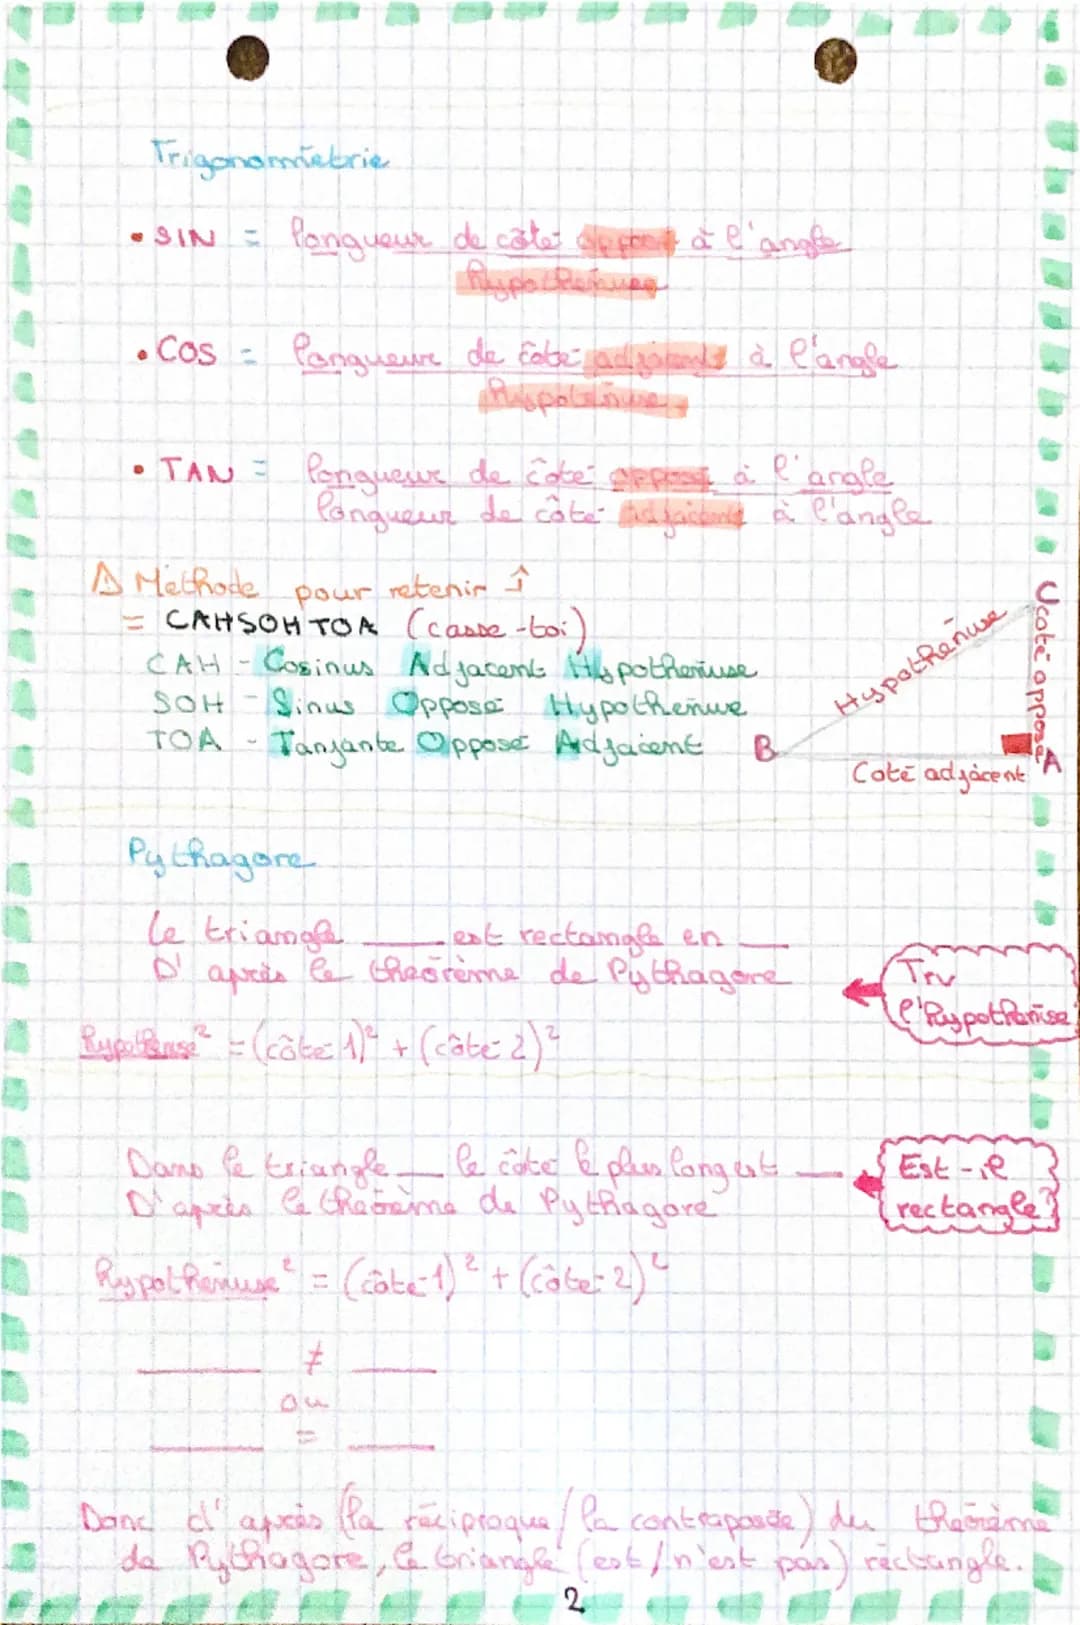 Trigonométrie
• SIN = longueur de côté opposé à l'angle
hypothénuse
• COS = longueur de côté adjacent à l'angle
hypoténuse
• TAN = longueur de côté opposé à l'angle
longueur de côté adjacent à l'angle
⚠ Méthode pour retenir ↑
= CAHSOHTOA (casse-toi)
CAH - Cosinus Adjacent Hypothénuse
SOH - Sinus Opposé Hypothénuse
TOA - Tanjante Opposé Adjacent
B
Hypothénuse
C
coté opposé
A
Coté adjacent
Pythagore
Le triangle ___ est rectangle en ___
D'après le théorème de Pythagore
Trv
l'hypothénuse
hypothénuse² = (côté 1)² + (côté 2)²
Dans le triangle ___ le côté le plus long est ___
D'après le théorème de Pythagore
Est-il
rectangle?
hypothénuse² = (côté 1)² + (côté 2)²
___ ≠ ___
ou
___ = ___
Donc d'après (la réciproque / la contraposée) du théorème
de Pythagore, le triangle (est / n'est pas) rectangle.
2